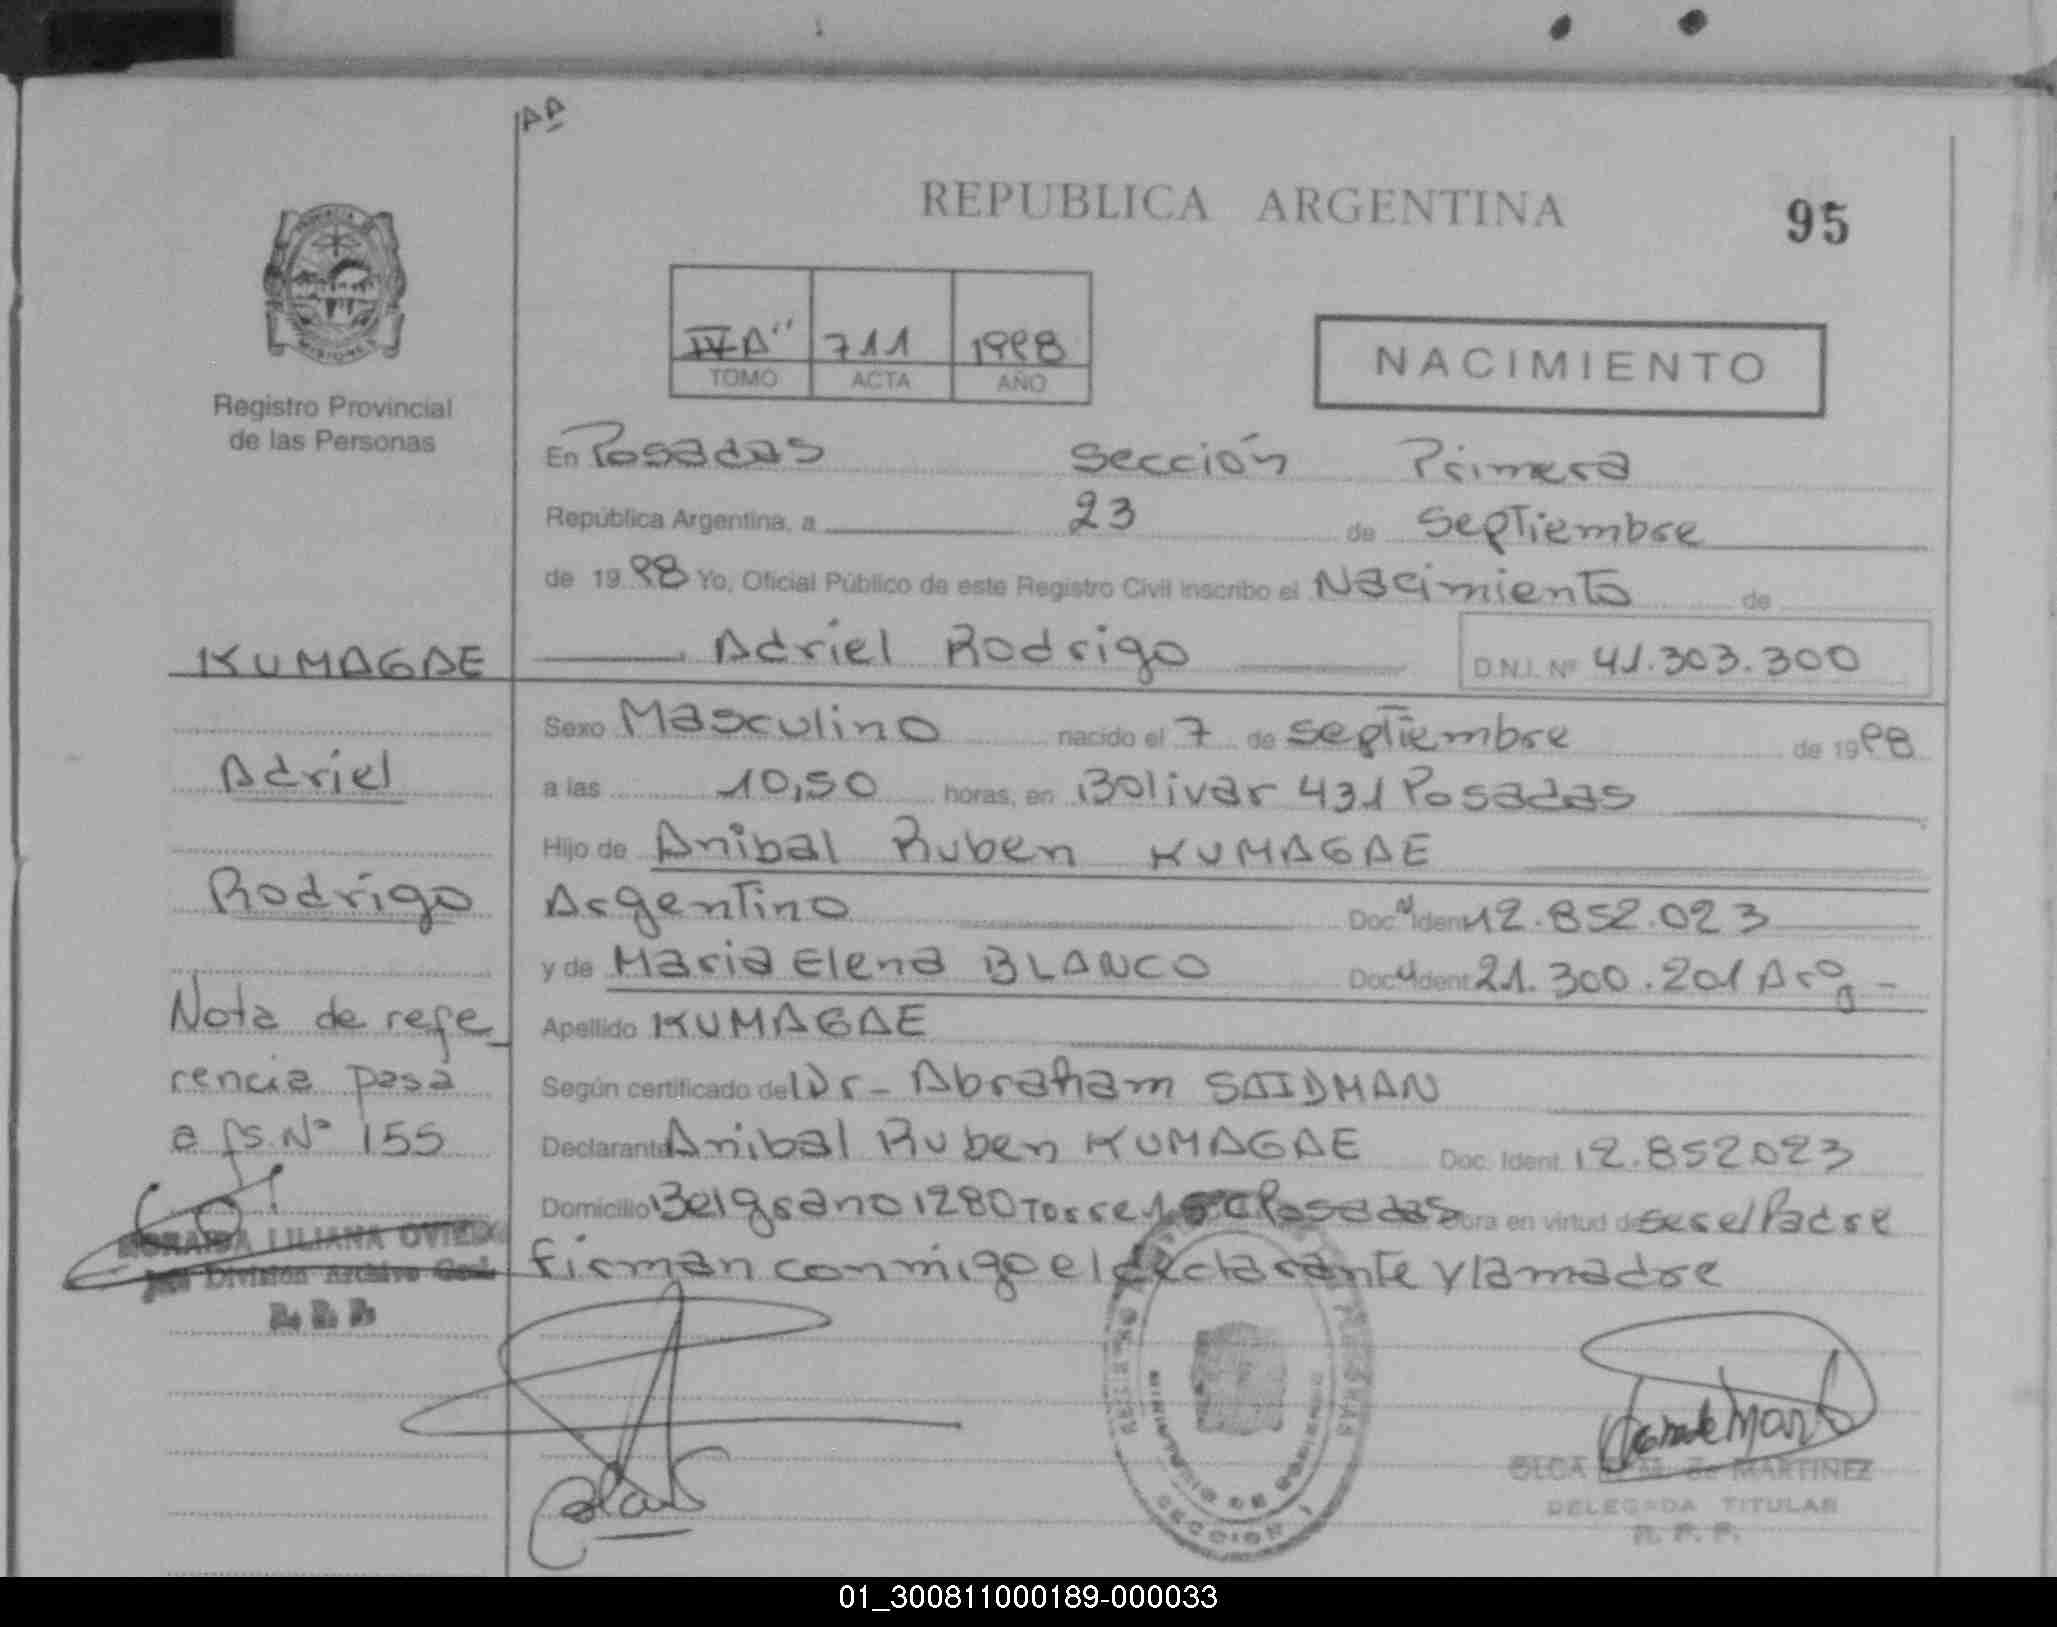 AA
REPUBLICA ARGENTINA
95
MISIONES
IV "A" 711 1998
TOMO ACTA AÑO
NACIMIENTO
Registro Provincial
de las Personas
En Posadas Sección Primera
República Argentina, a 23 de Septiembre
de 1998 Yo, Oficial Público de este Registro Civil inscribo el Nacimiento de
Adriel Rodrigo D.N.I. Nº 41.303.300
Sexo Masculino nacido el 7 de septiembre de 1998
a las 10,50 horas, en Bolivar 431 Posadas
Hijo de Anibal Ruben KUMAGAE
Argentino Doc. Ident 12.852.023
y de Maria Elena BLANCO Doc. Ident 21.300.201 Arg
Apellido KUMAGAE
Según certificado del Dr- Abraham SAIDMAN
Declarante Anibal Ruben KUMAGAE Doc. Ident. 12.852023
Domicilio Belgrano 1280 Torre 1 Posadas obra en virtud de ser el Padre
Firman conmigo el declarante y la madre
KUMAGAE
Adriel
Rodrigo
Nota de refe
rencia pasa
a fs. Nº 155
LILIANA OVIEDO
Jefe División Archivo Gral
R. P. P.
SECCION 1
de MARTINEZ
DELEGADA TITULAR
R. P. P.
01_300811000189-000033